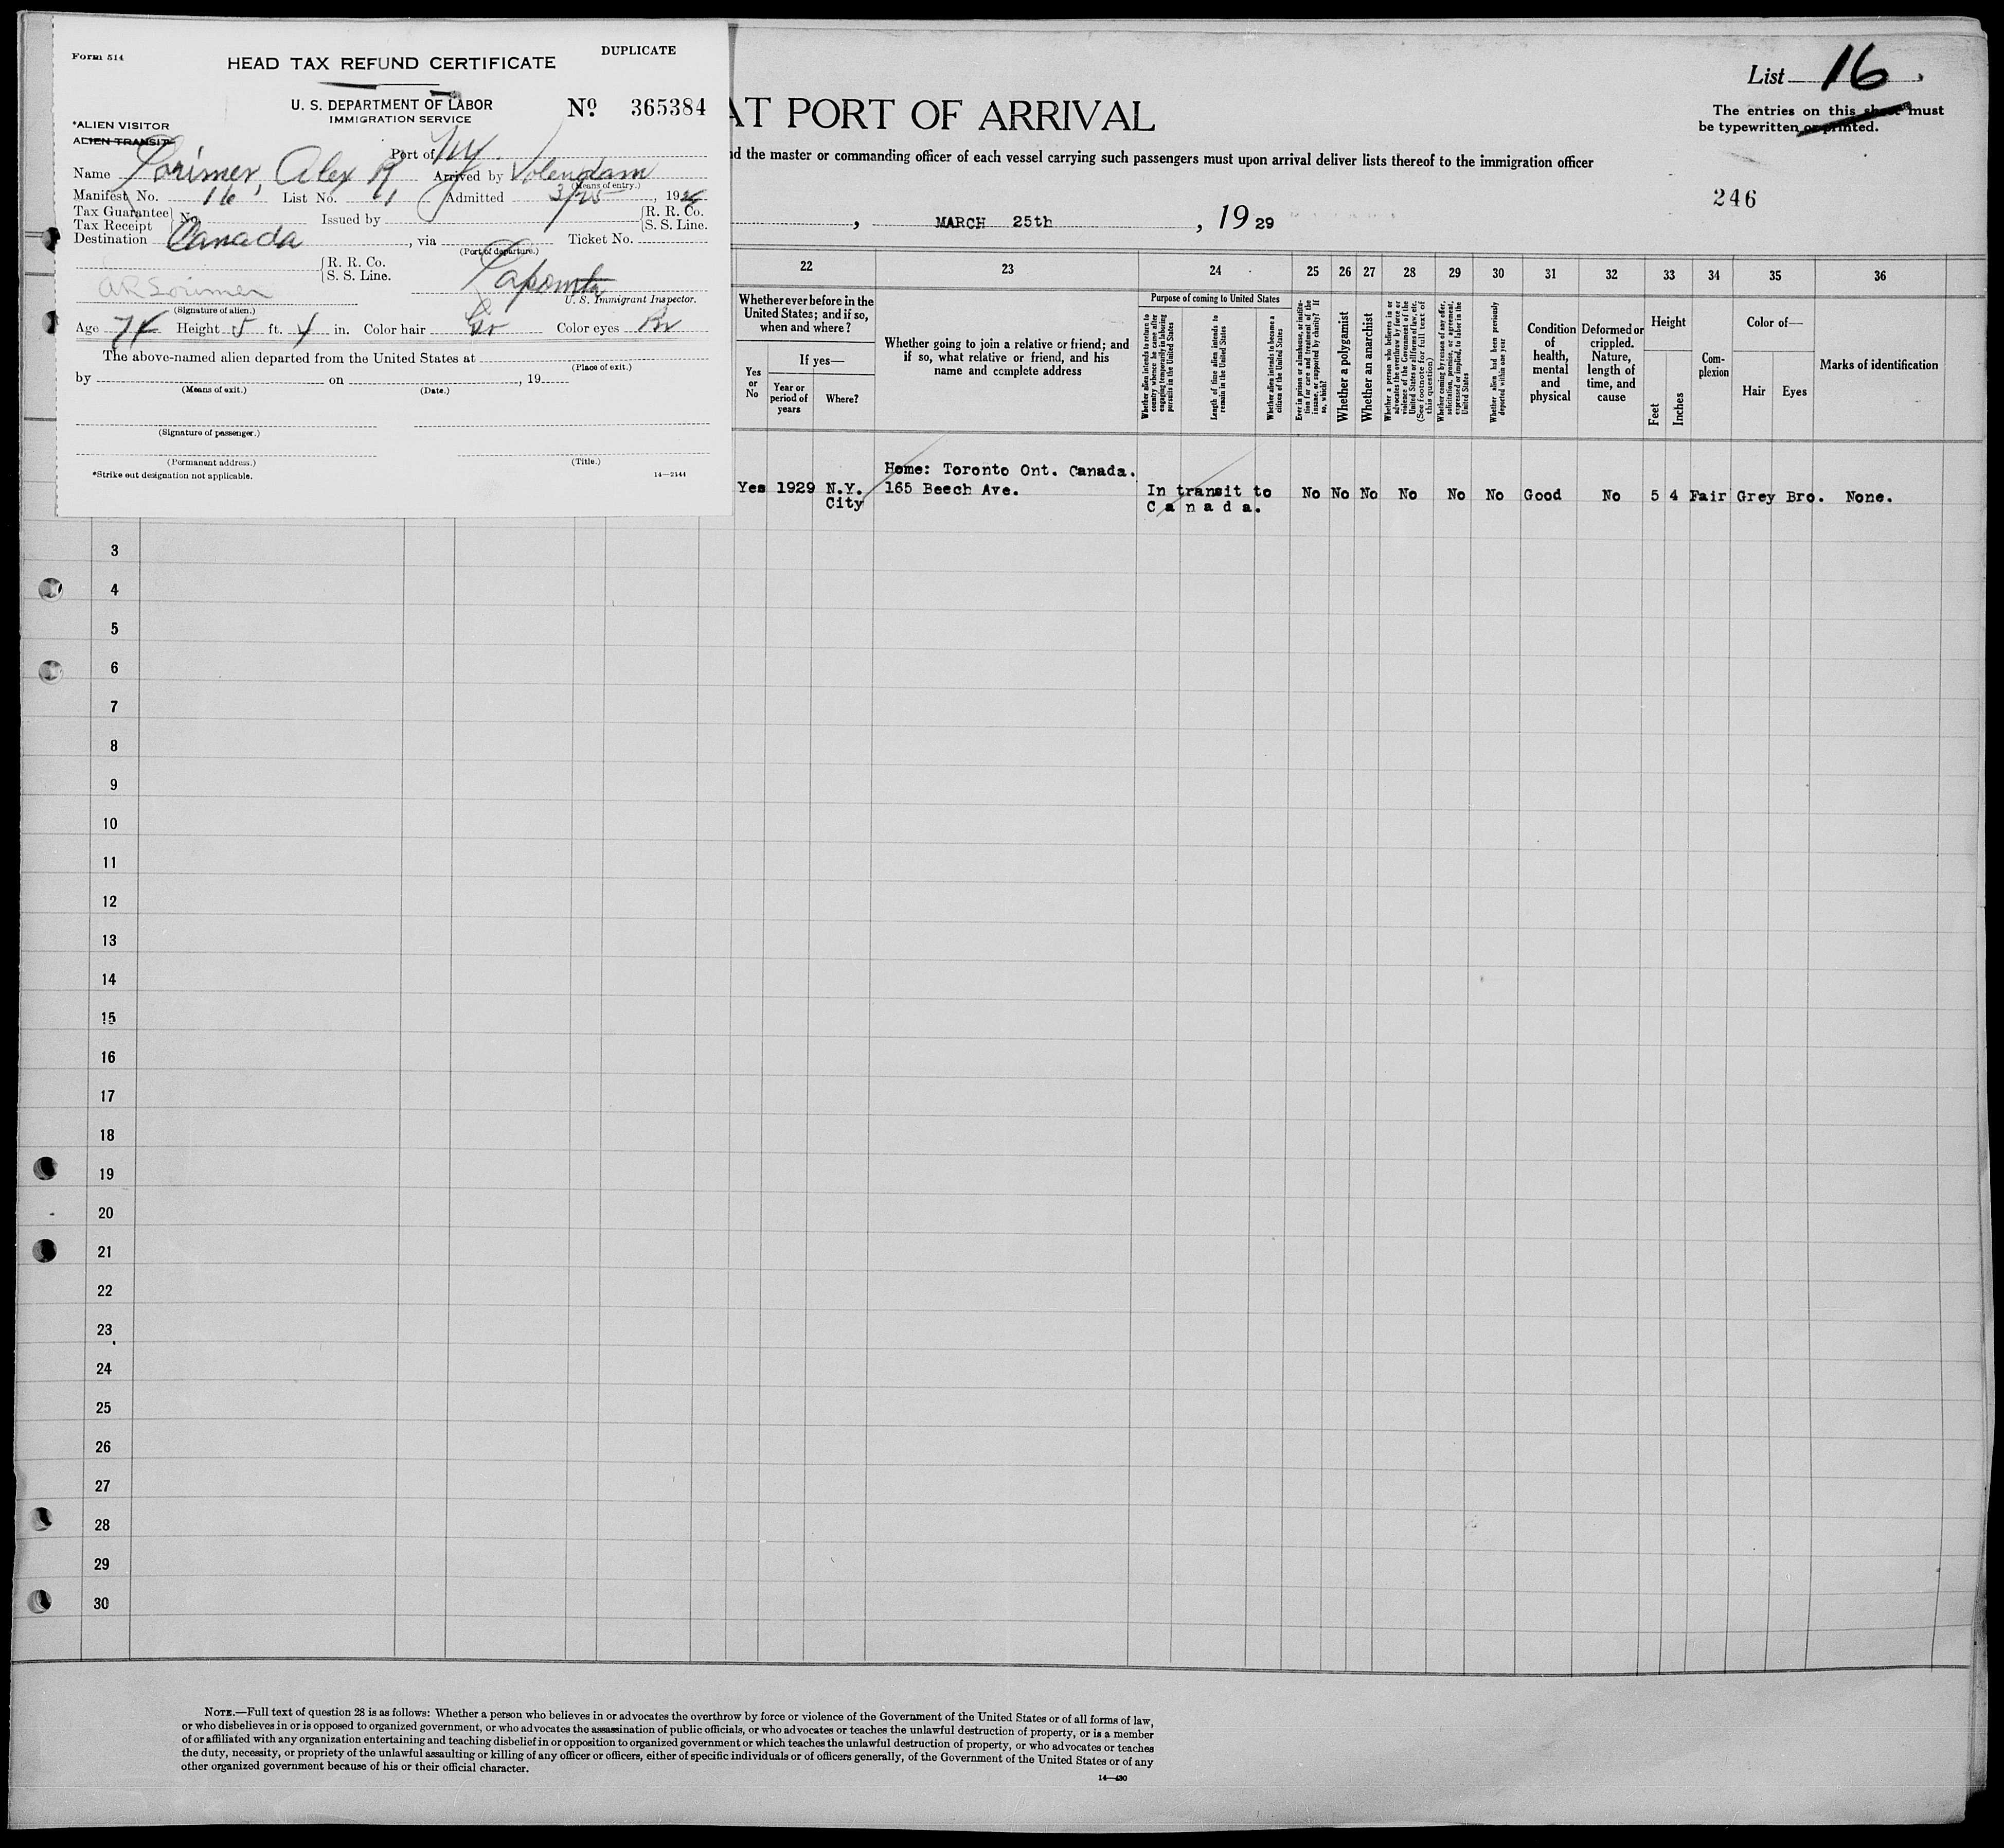 Form 514
DUPLICATE
HEAD TAX REFUND CERTIFICATE
U. S. DEPARTMENT OF LABOR
IMMIGRATION SERVICE
No. 365384
*ALIEN VISITOR
ALIEN TRANSIT
Port of NY
Name Lorimer, Alex R Arrived by Volendam
(Means of entry.)
Manifest No. 16 List No. 1 Admitted 3/25, 1929
Tax Guarantee
Tax Receipt
No. Issued by {R. R. Co.
{S. S. Line.
Destination Canada, via Ticket No.
(Port of departure.)
{R. R. Co.
{S. S. Line.
AR Lorimer
(Signature of alien.)
U. S. Immigrant Inspector.
Age 74 Height 5 ft. 4 in. Color hair Gr Color eyes Br
The above-named alien departed from the United States at
(Place of exit.)
by on , 19
(Means of exit.) (Date.)
(Signature of passenger.)
(Permanent address.) (Title.)
*Strike out designation not applicable. 14—2144
AT PORT OF ARRIVAL
List 16
The entries on this sheet must
be typewritten or printed.
nd the master or commanding officer of each vessel carrying such passengers must upon arrival deliver lists thereof to the immigration officer
246
, MARCH 25th, 1929
22 23 24 25 26 27 28 29 30 31 32 33 34 35 36
Whether ever before in the United States; and if so, when and where?
Yes or No
If yes—
Year or period of years
Where?
Whether going to join a relative or friend; and if so, what relative or friend, and his name and complete address
Purpose of coming to United States
Whether alien intends to return to country whence he came after engaging temporarily in laboring pursuits in the United States
Length of time alien intends to remain in the United States
Whether alien intends to become a citizen of the United States
Ever in prison or almshouse, or institution for care and treatment of the insane, or supported by charity? If so, which?
Whether a polygamist
Whether an anarchist
Whether a person who believes in or advocates the overthrow by force or violence of the Government of the United States or all forms of law, etc. (See footnote for full text of this question)
Whether coming by reason of any offer, solicitation, promise, or agreement, expressed or implied, to labor in the United States
Whether alien had been previously deported within one year
Condition of health, mental and physical
Deformed or crippled. Nature, length of time, and cause
Height
Feet
Inches
Complexion
Color of—
Hair
Eyes
Marks of identification
Home: Toronto Ont. Canada.
Yes 1929 N.Y. 165 Beech Ave. In transit to No No No No No No Good No 5 4 Fair Grey Bro. None.
City Canada.
3
4
5
6
7
8
9
10
11
12
13
14
15
16
17
18
19
20
21
22
23
24
25
26
27
28
29
30
NOTE.—Full text of question 28 is as follows: Whether a person who believes in or advocates the overthrow by force or violence of the Government of the United States or of all forms of law,
or who disbelieves in or is opposed to organized government, or who advocates the assassination of public officials, or who advocates or teaches the unlawful destruction of property, or is a member
of or affiliated with any organization entertaining and teaching disbelief in or opposition to organized government or which teaches the unlawful destruction of property, or who advocates or teaches
the duty, necessity, or propriety of the unlawful assaulting or killing of any officer or officers, either of specific individuals or of officers generally, of the Government of the United States or of any
other organized government because of his or their official character.
14—430